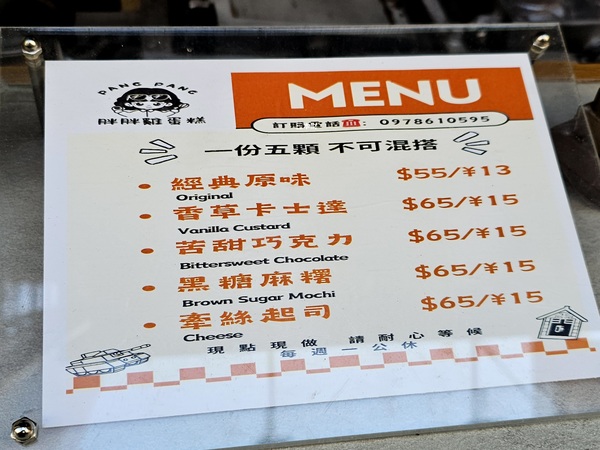 PANG PANG
胖胖雞蛋糕
MENU
訂購電話☎: 0978610595
一份五顆 不可混搭
• 經典原味 $55/¥13
Original
• 香草卡士達 $65/¥15
Vanilla Custard
• 苦甜巧克力 $65/¥15
Bittersweet Chocolate
• 黑糖麻糬 $65/¥15
Brown Sugar Mochi
• 牽絲起司 $65/¥15
Cheese
現點現做 請耐心等候
每週一公休